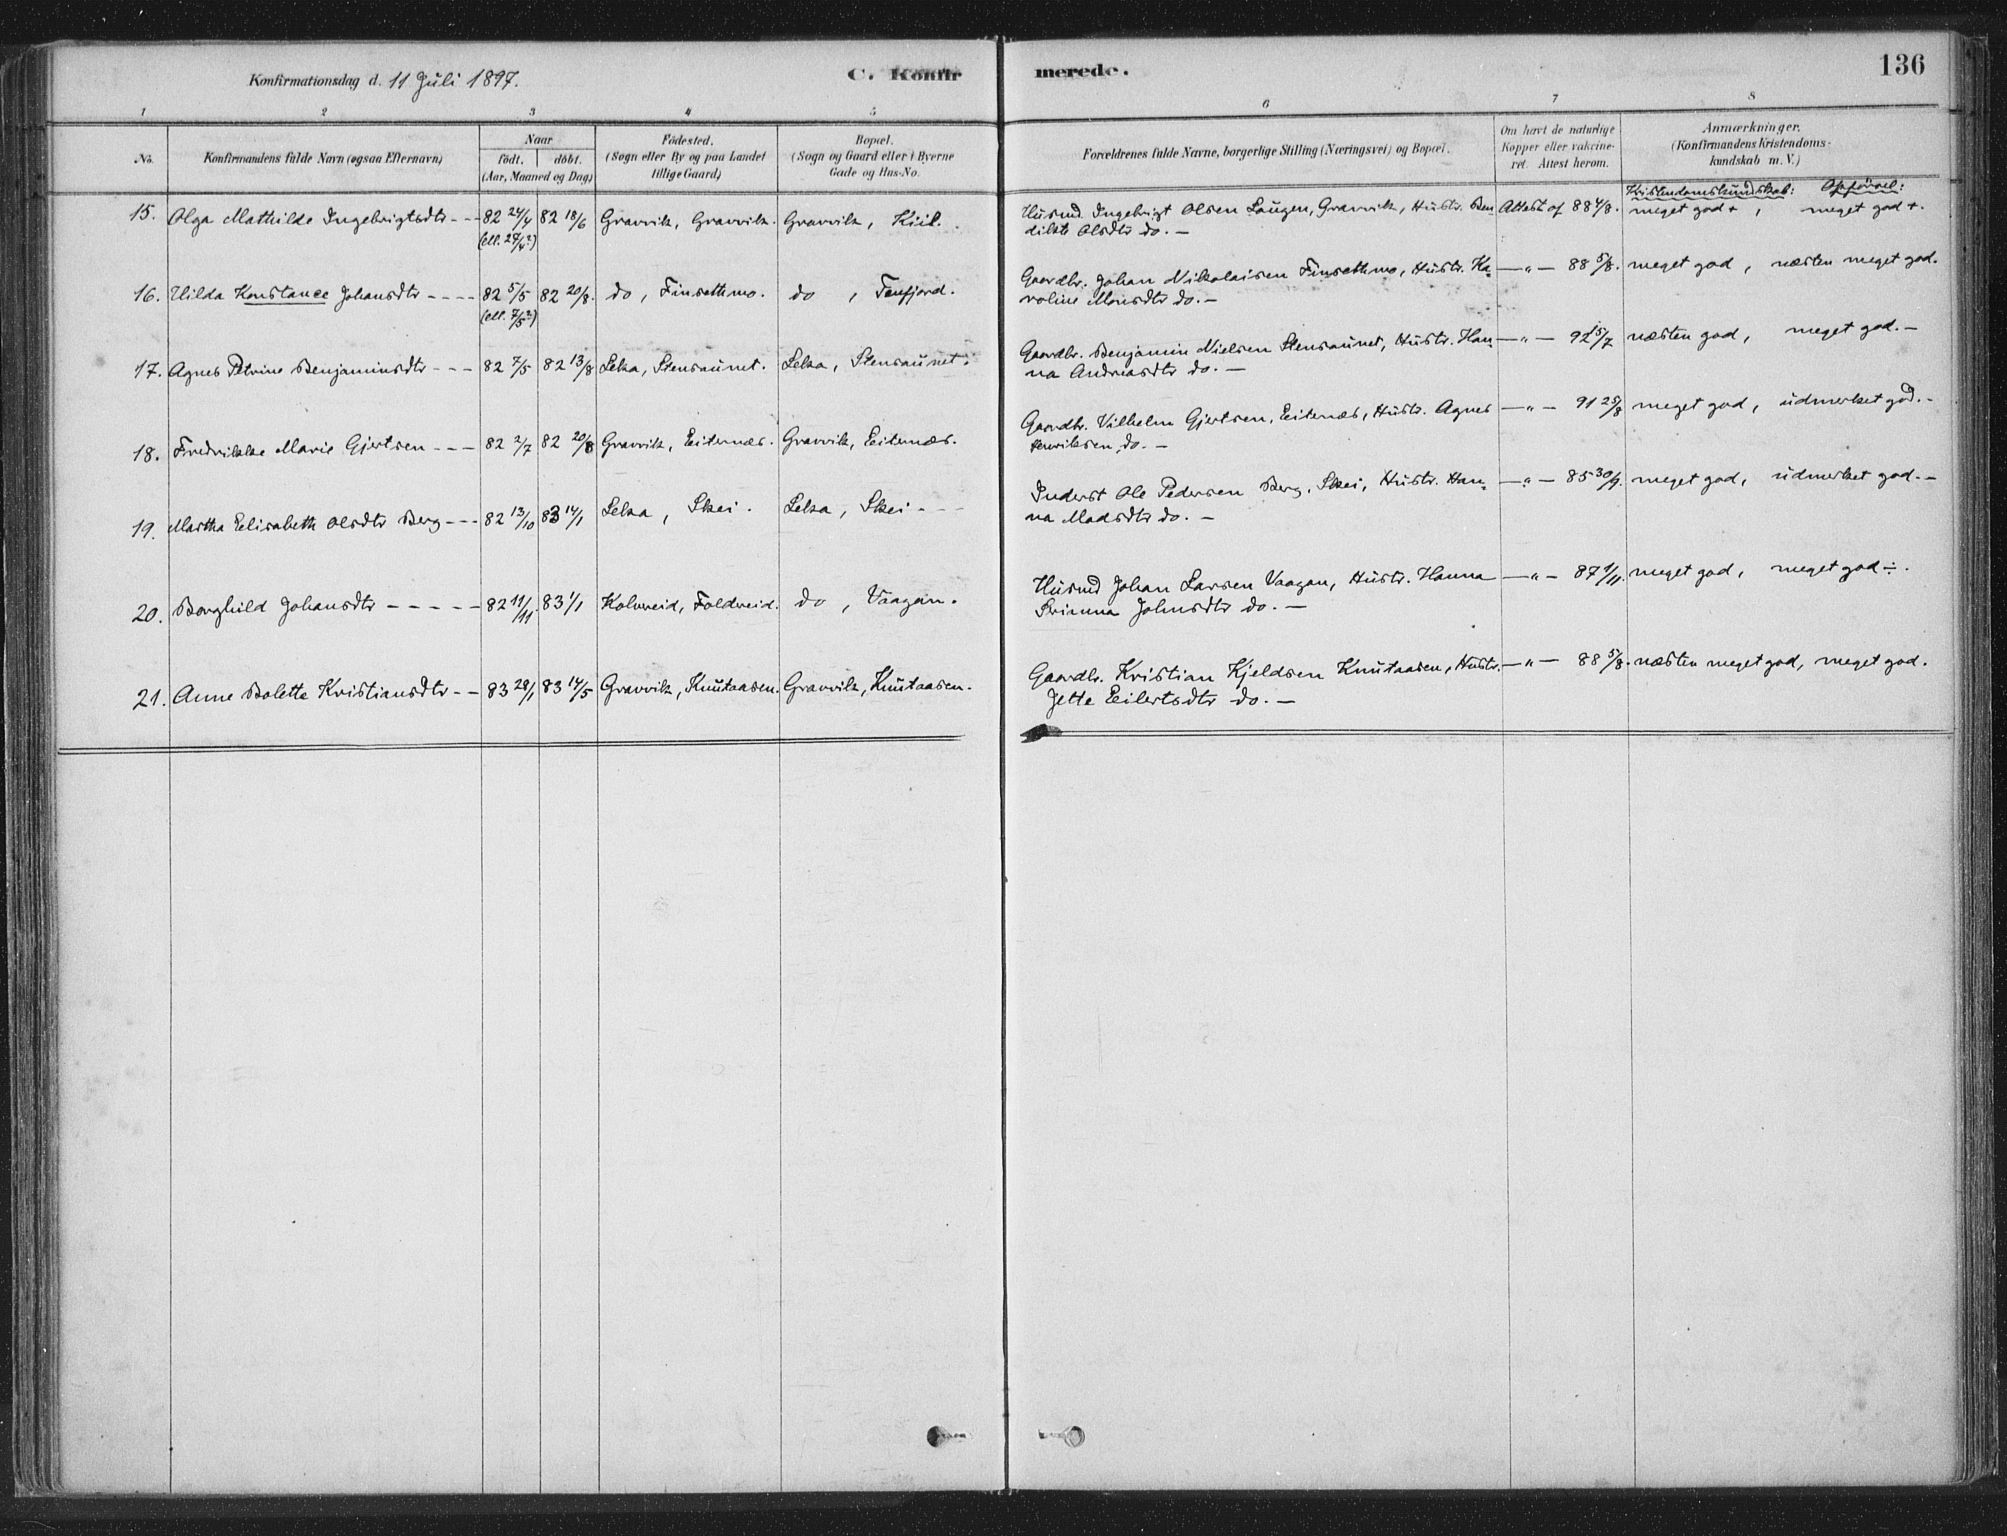 Konfirmationsdag d. 11 Juli 1897.
C. Konfirmerede.
136
1 2 3 4 5 6 7 8
No.
Konfirmandens fulde Navn (ogsaa Efternavn)
Naar
födt. döbt.
(Aar, Maaned og Dag)
Födested.
(Sogn eller By og paa Landet
tillige Gaard)
Bopæl.
(Sogn og Gaard eller i Byerne
Gade og Hus-No.
Forældrenes fulde Navne, borgerlige Stilling (Næringsvei) og Bopæl.
Om havt de naturlige
Kopper eller vakcine-
ret. Attest herom.
Anmærkninger.
(Konfirmandens Kristendoms-
kundskab m. V.)
Kristendomskundskab: Opförsel:
15. Olga Mathilde Ingebrigtsdtr --- 82 24/4 82 18/6 Gravvik, Gravvik. Gravvik, Kiil. Husmd. Ingebrigt Olsen Laugen, Gravvik, Hustr. Ben- Attest af 88 4/8. meget god +, meget god +.
(ell. 28/4?) dikte Olsdtr do. —
16. Hilda Konstance Johansdtr ---- 82 5/5 82 20/8. do, Finsethmo. do, Tenfjord. Gaardbr. Johan Nikolaisen Finsethmo, Hustr. Ka- —"— 88 5/8. meget god, næsten meget god.
(ell. 7/5?) roline Monsdtr do. —
17. Agnes Petrine Benjaminsdtr --- 82 7/5 82 13/8 Leka, Stensaunet. Leka, Stensaunet. Gaardbr. Benjamin Nielsen Stensaunet, Hustr. Han- —"— 92 15/7 næsten god, meget god. —
na Andreasdtr do. —
18. Fredrikke Marie Gjertsen --- 82 2/7 82 20/8 Gravvik, Eiternæs. Gravvik, Eiternæs. Gaardbr. Vilhelm Gjertsen, Eiternæs, Hustr. Agnes —"— 91 25/8 meget god, udmerket god. -
Henriksen, do. —
19. Martha Elisabeth Olsdtr Berg --- 82 13/10 83 14/1 Leka, Skei. Leka, Skei --- Inderst Ole Pedersen Berg, Skei, Hustr. Han- —"— 85 30/9. meget god, udmerket god. -
na Madsdtr do. —
20. Borghild Johansdtr ----- 82 11/11 83 1/1 Kolvereid, Foldereid. do, Vaagan. Husmd Johan Larsen Vaagan, Hustr. Hanna —"— 87 1/11. meget god, meget god ÷.
Johnsdtr do. —
21. Anne Bolette Kristiansdtr -- 83 28/1 83 14/5 Gravvik, Knutaasen. Gravvik, Knutaasen. Gaardbr. Kristian Kjeldsen Knutaasen, Hustr. —"— 88 5/8. næsten meget god, meget god.
Jette Eilertsdtr do. —